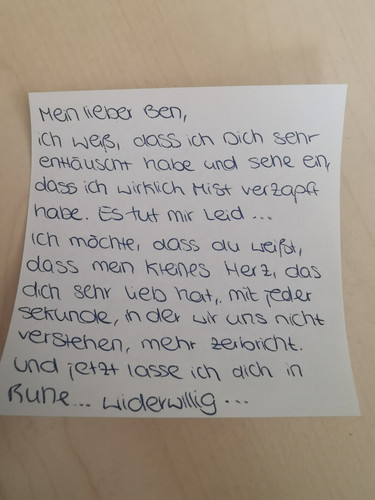 Mein lieber Ben,
ich weiß, dass ich Dich sehr
enttäuscht habe und sehe ein,
dass ich wirklich Mist verzapft
habe. Es tut mir Leid ...
Ich möchte, dass du weißt,
dass mein kleines Herz, das
dich sehr lieb hat, mit jeder
sekunde, in der wir uns nicht
verstehen, mehr zerbricht.
und jetzt lasse ich dich in
Ruhe... widerwillig ...